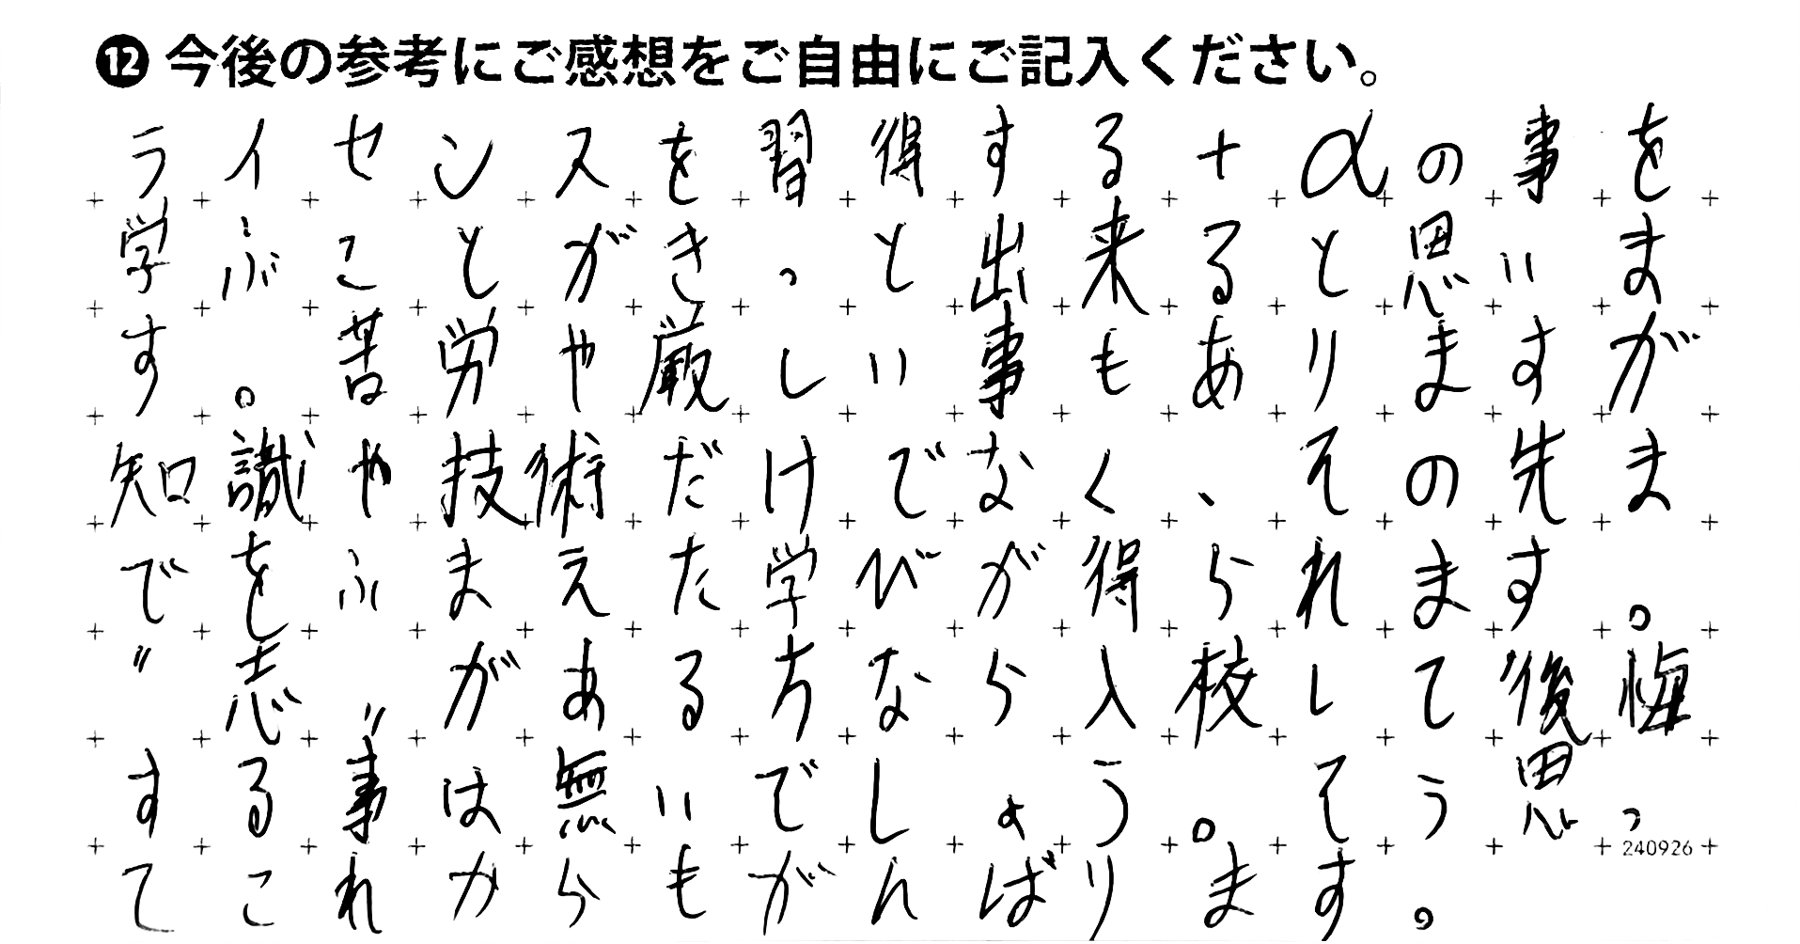 ⓬ 今後の参考にご感想をご自由にご記入ください。
ライセンスを習得する+αの事を
学ぶことがきっと出来ると思いま
す。苦労や厳しい事もありますが
知識や技術だけでなく、その先ま
でをふまえた学びが得られます。
〃志〃がある方なら入校して後悔
する事は無いでしょう。そう思っ
240926
てこれからもがんばります。